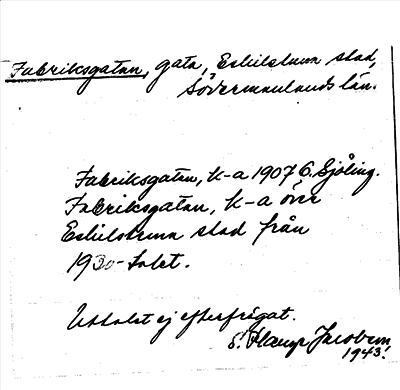 Fabriksgatan, gata, Eskilstuna stad,
Södermanlands län.
Fabriksgatan, k-a 1907 G. Sjöling.
Fabriksgatan, k-a över
Eskilstuna stad från
1930-talet.
Uttalet ej efterfrågat.
Jacobson
1943.